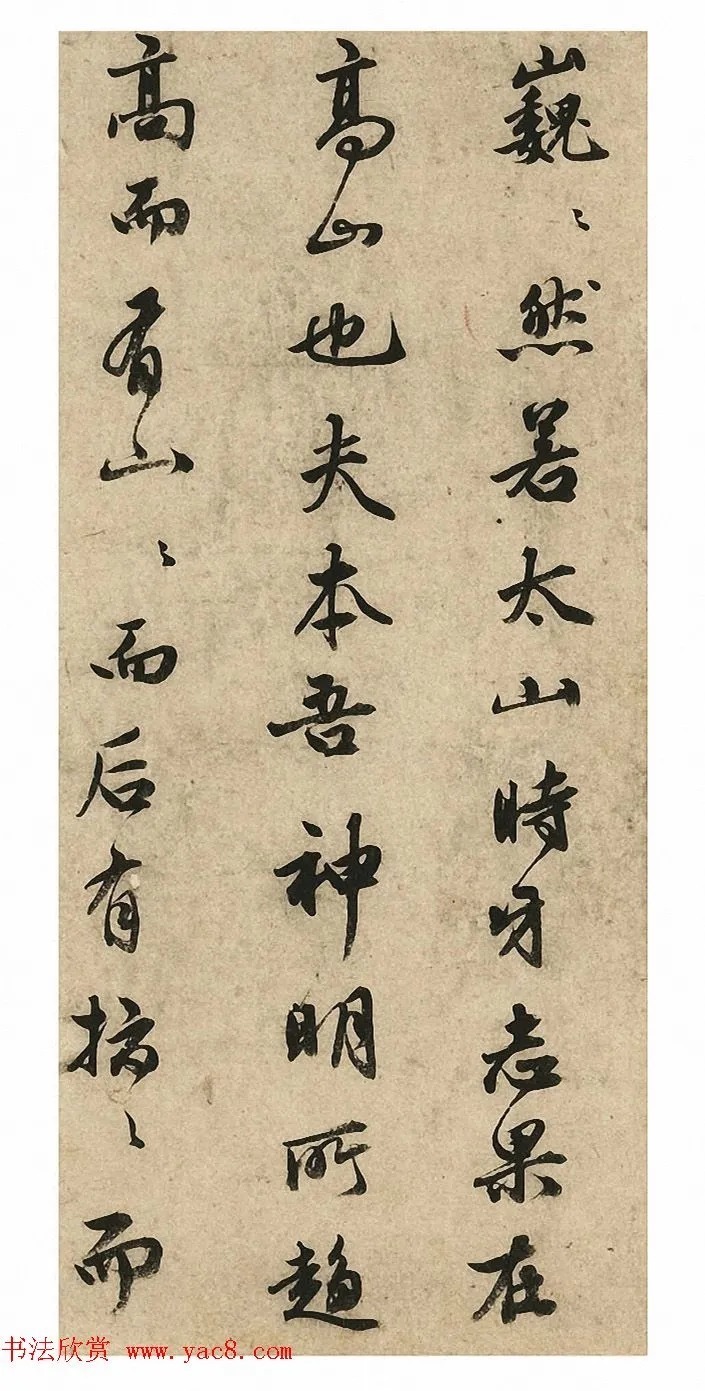 巍〻然若太山時牙志果在
高山也夫本吾神明所趨
高而有山〻而后有〻而
书法欣赏 www.yac8.com